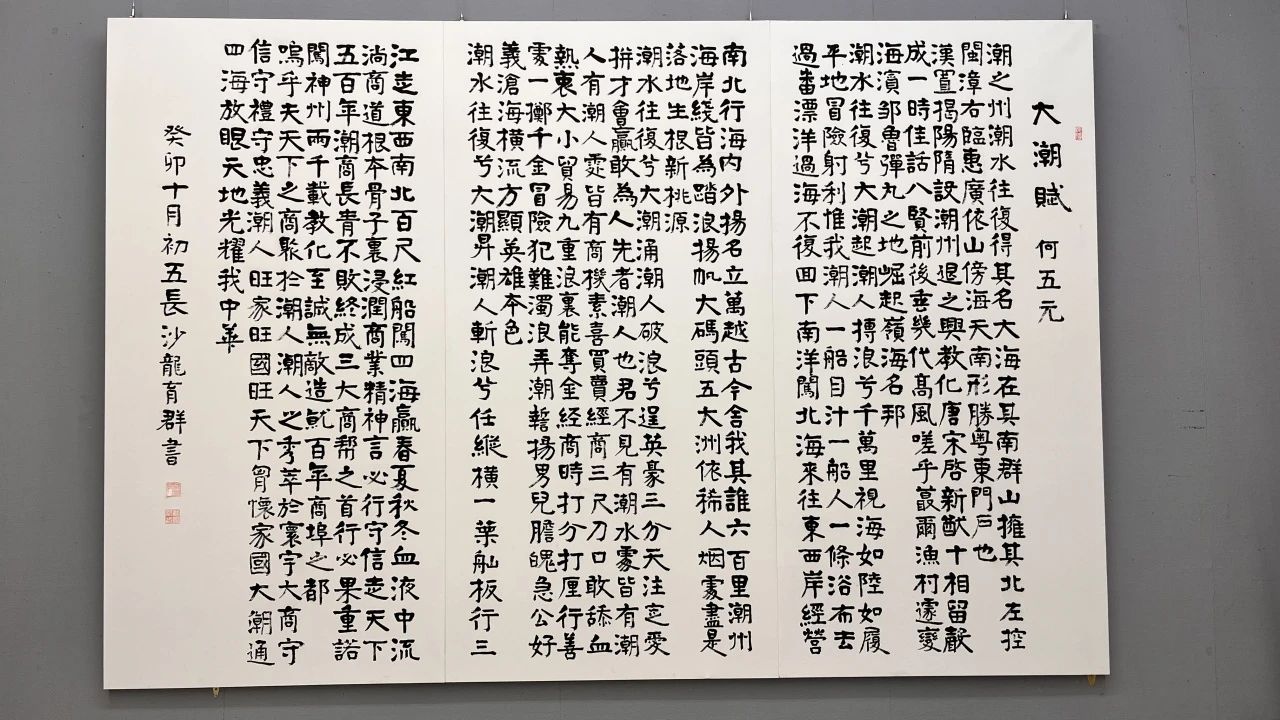 大潮賦 何五元
潮之州潮水往復得其名大海在其南群山擁其北左控
閩漳右臨惠廣依山傍海天南形勝粵東門戶也
漢置揭陽隋設潮州退之興教化唐宋啓新猷十相留聲
成一時佳話八賢前後垂幾代高風嗟乎蕞爾漁村遽變
海濱鄒魯彈丸之地崛起嶺海名邦
潮水往復兮大潮起潮人摶浪兮千萬里視海如陸如履
平地冒險射利惟我潮人一船目汁一船人一條浴布去
過番漂洋過海不復回下南洋闖北海來往東西岸經營
南北行海內外揚名立萬越古今舍我其誰六百里潮州
海岸綫皆為踏浪揚帆大碼頭五大洲依稀人烟處盡是
落地生根新桃源
潮水往復兮大潮涌潮人破浪兮逞英豪三分天注定愛
拼才會贏敢為人先者潮人也君不見有潮水處皆有潮
人有潮人處皆有商機素喜買賣經商三尺刀口敢舔血
熱衷大小貿易九重浪裏能奪金經商時打分打厘行善
處一擲千金冒險犯難濁浪弄潮誓揚男兒膽魄急公好
義滄海橫流方顯英雄本色
潮水往復兮大潮昇潮人斬浪兮任縱橫一葉舢板行三
江走東西南北百尺紅船闖四海贏春夏秋冬血液中流
淌商道根本骨子裏浸潤商業精神言必行守信走天下
五百年潮商長青不敗終成三大商幫之首行必果重諾
闖神州兩千載教化至誠無敵造就百年商埠之都
嗚乎夫天下之商聚於潮人潮人之秀萃於寰宇大商守
信守禮守忠義潮人旺家旺國旺天下胸懷家國大潮通
四海放眼天地光耀我中華
癸卯十月初五長沙龍育群書